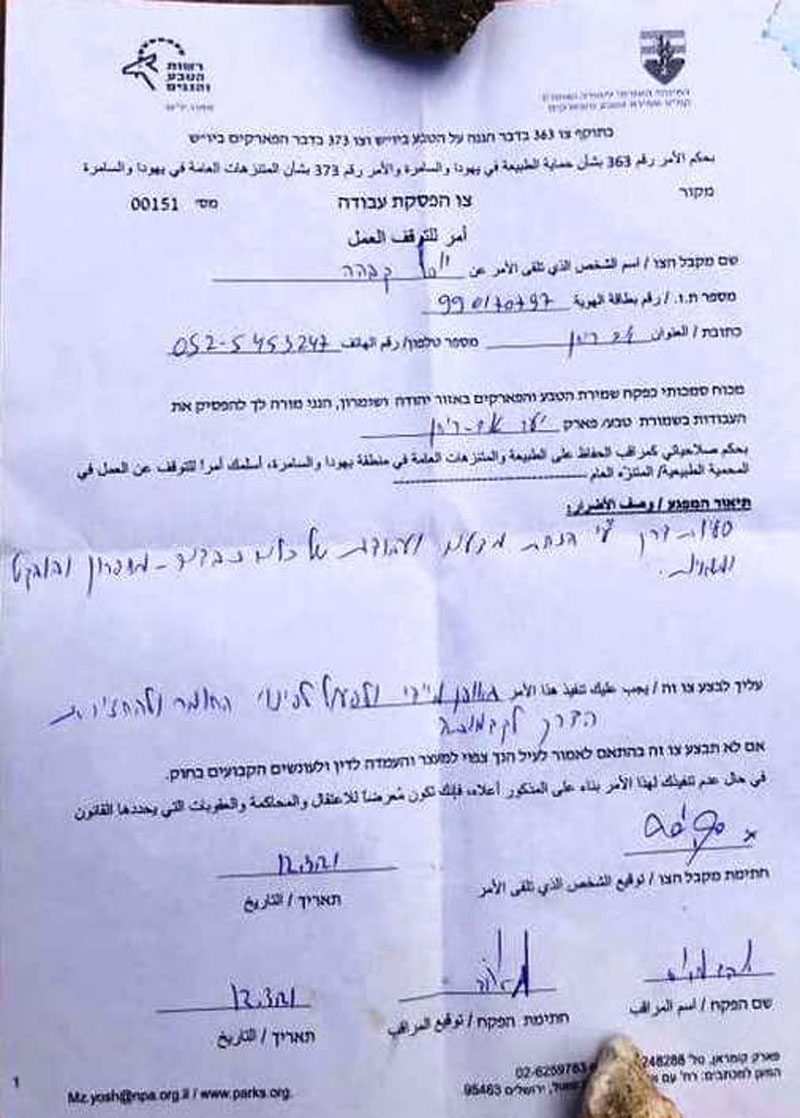 רשות
הטבע
והגנים
בתוקף צו 363 בדבר הגנה על הטבע ביו״ש וצו 373 בדבר הפארקים ביו״ש
بحكم الأمر رقم 363 بشأن حماية الطبيعة في يهودا والسامرة والأمر رقم 373 بشأن المتنزهات العامة في يهودا والسامرة
מקור
צו הפסקת עבודה
מס׳ 00151
أمر للتوقف العمل
שם מקבל הצו / اسم الشخص الذي تلقى الأمر عن קבהה
מספר ת.ז. / رقم بطاقة الهوية 990170797
כתובת / العنوان
מספר טלפון / رقم الهاتف 052-5453247
מכוח סמכותי כפקח שמירת הטבע והפארקים באזור יהודה ושומרון, הנני מורה לך להפסיק את
העבודות בשמורת טבע/ פארק יער
بحكم صلاحياتي كمراقب الحفاظ على الطبيعة والمتنزهات العامة في منطقة يهودا والسامرة، أسلمك أمرا للتوقف عن العمل في
المحمية الطبيعية/ المتنزه العام
תיאור המפגע / وصف الأضرار:
דרך ע״י הנחת ועבודת של כלים
עליך לבצע צו זה / يجب عليك تنفيذ هذا الأمر באופן מיידי ולפעול לפינוי החומר ולהחזיר את
הדרך לקדמותה
אם לא תבצע צו זה בהתאם לאמור לעיל הנך צפוי למעצר והעמדה לדין ולעונשים הקבועים בחוק.
في حال عدم تنفيذك لهذا الأمر بناء على المذكور أعلاه، فإنك تكون مُعرضاً للاعتقال والمحاكمة والعقوبات التي يحددها القانون
x
12.3.21
חתימת מקבל הצו / توقيع الشخص الذي تلقى الأمر
תאריך / التاريخ
12.3.21
שם הפקח / اسم المراقب
חתימת הפקח / توقيع المراقب
תאריך / التاريخ
פארק קומראן, טל׳ 248288
02-6259763
המען למכתבים: רח׳ עם
ירושלים 95463
Mz.yosh@npa.org.il / www.parks.org.
1